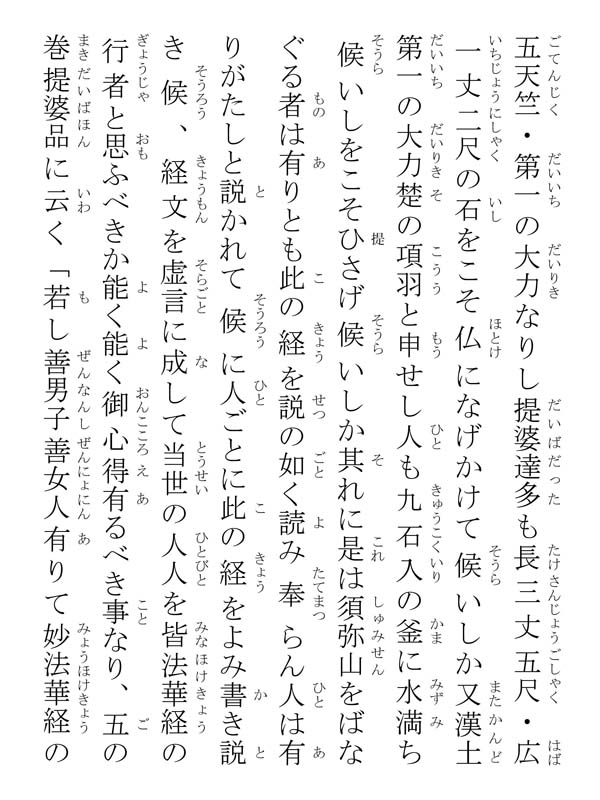 五天竺・第一の大力なりし提婆達多も長三丈五尺・広
一丈二尺の石をこそ仏になげかけて候いしか又漢土
第一の大力楚の項羽と申せし人も九石入の釜に水満ち
候いしをこそひさげ候いしか其れに是は須弥山をばな
ぐる者は有りとも此の経を説の如く読み奉らん人は有
りがたしと説かれて候に人ごとに此の経をよみ書き説
き候、経文を虚言に成して当世の人人を皆法華経の
行者と思ふべきか能く能く御心得有るべき事なり、五の
巻提婆品に云く「若し善男子善女人有りて妙法華経の